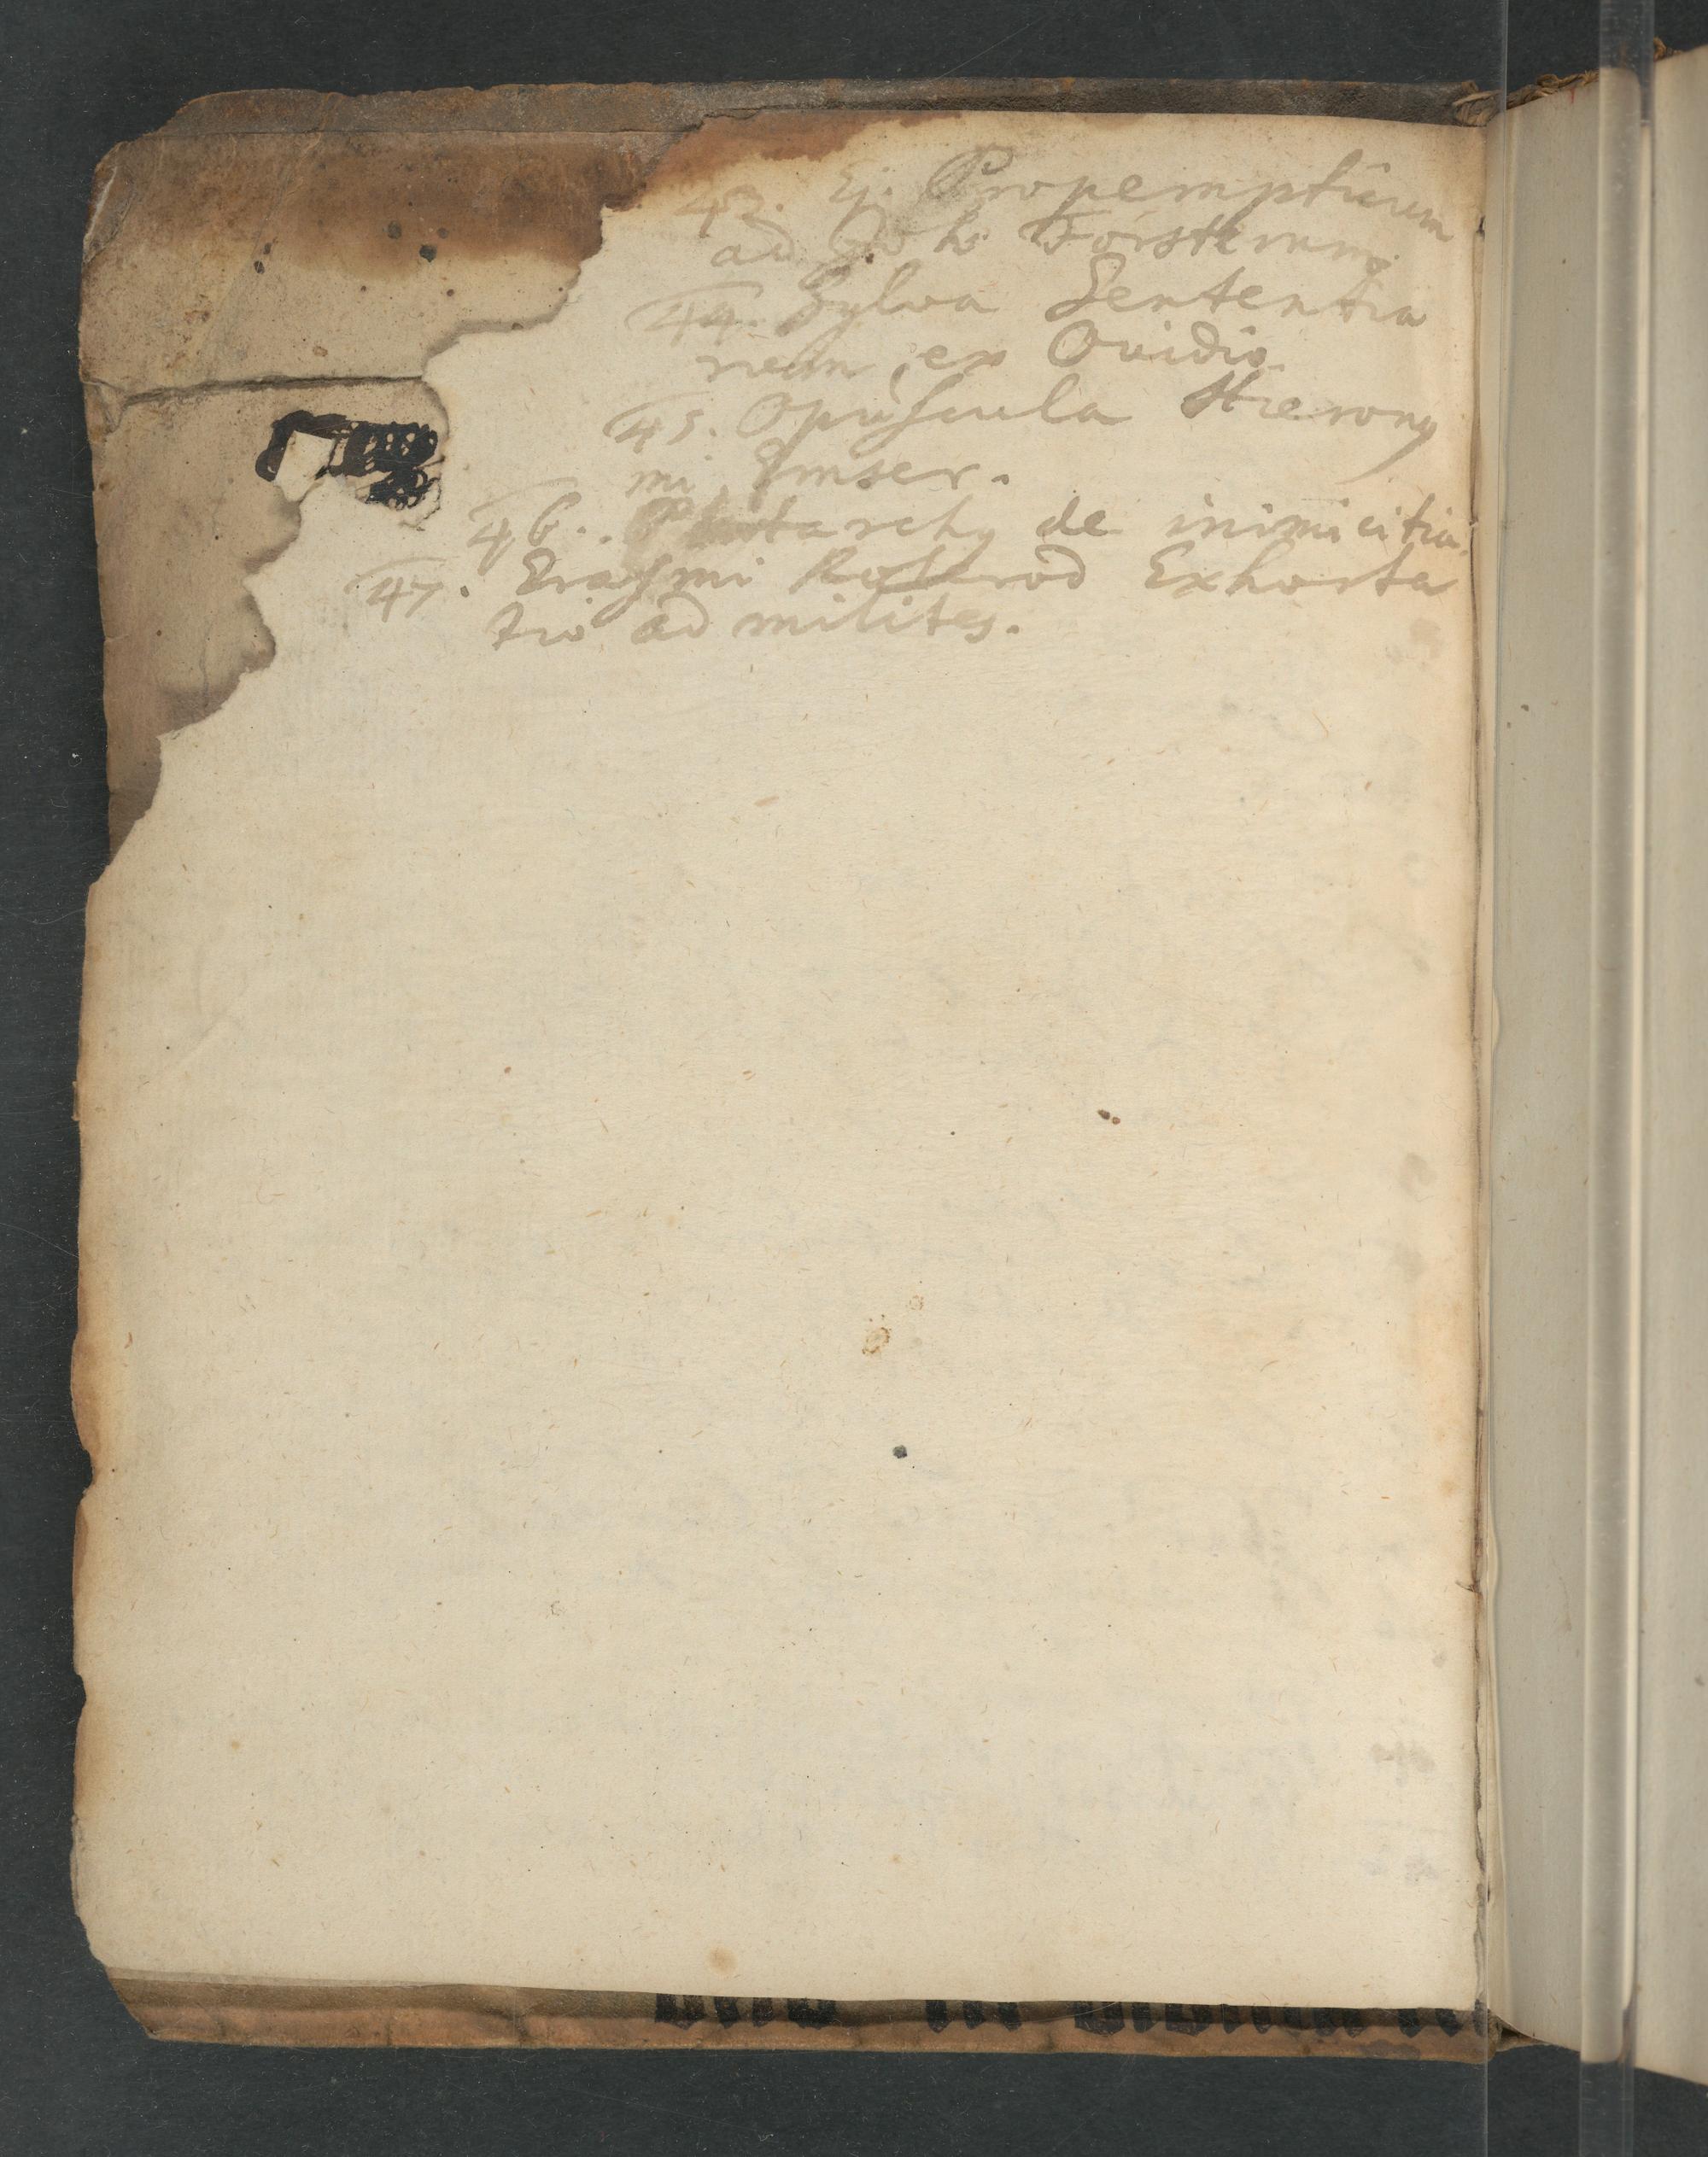 43. Ej. Propempticum
ad Joh. Försterum.
44. Sylva Sententia
rum ex Ovidio.
45. Opuscula Hierony
mi Emser.
46. Plutarchq de inimicitia.
47. Erasmi Roterod Exhorta
tio ad milites.